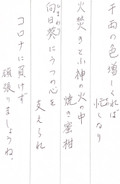 千両の色増しくれば
忙しなり
火焚きと小神の火の中
焼き蜜柑
向日葵にうつの心を
支えられ
コロナに負けず
頑張りましょうね。